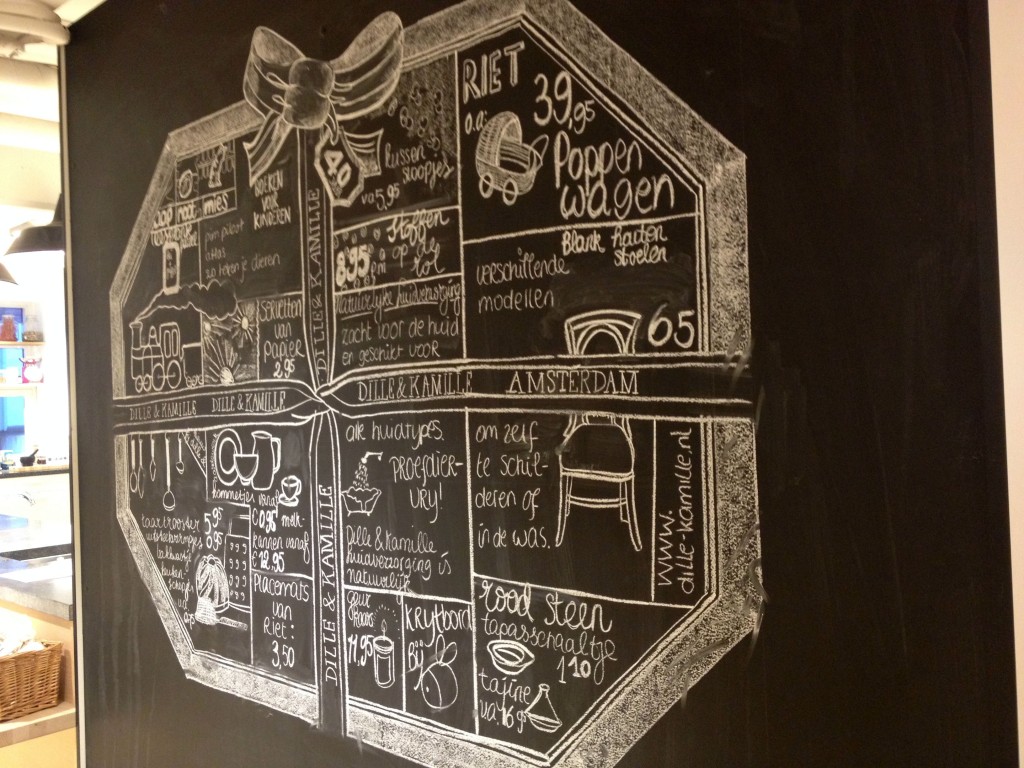 RIET
o.a:
39,95
Poppen
wagen
Blank houten
stoelen
verschillende
modellen
65
40
kussen
sloopjes
va 5,95
stoffen
8,95
p.m
op
rol
natuurlijke huidverzorging
zacht voor de huid
en geschikt voor
BOEKEN
VOOR
KINDEREN
aap noot mies
zo teken je dieren
Servetten
van
papier
2,95
DILLE & KAMILLE
DILLE & KAMILLE DILLE & KAMILLE
DILLE & KAMILLE AMSTERDAM
DILLE & KAMILLE
kommetjes vanaf
€0,95 melk-
kannen vanaf
€12,95
taartrooster
5,95
8,95
Placemats
van
Riet:
3,50
alle huidtypes.
PROEFDIER-
VRIJ!
Dille & Kamille
huidverzorging is
natuurlijk
om zelf
te schil-
deren of
in de was.
www.
dille-kamille.nl
geur
kaars
11,95
Krijtbord
Bij
rood steen
tapasschaaltje
1,10
tajine
va 16,95